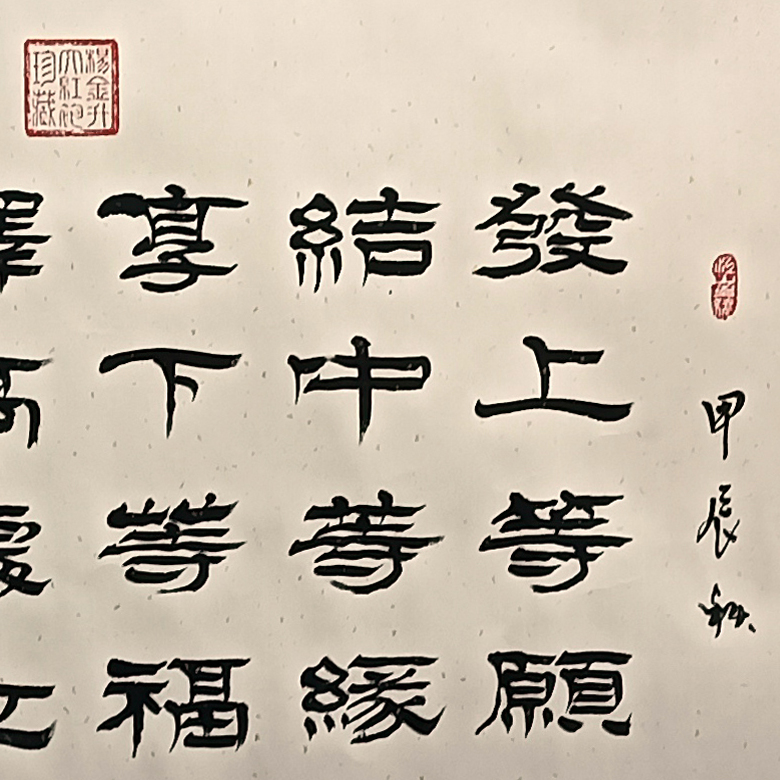 甲辰秋
發上等願
結中等緣
享下等福
擇高處立
楊金升
大紅袍
珍藏